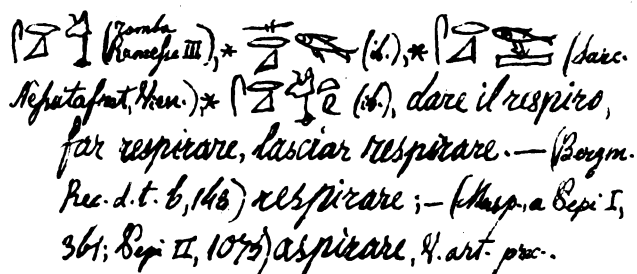 (Tomba Ramesse III), * (ib.), * (Sarc.
* (ib.), dare il respiro,
far respirare, lasciar respirare. — (Bergm.
Rec. d. t. 6, 148) respirare; — (Masp., a Pepi I,
361; Pepi II, 1075) aspirare, V. art. prec..